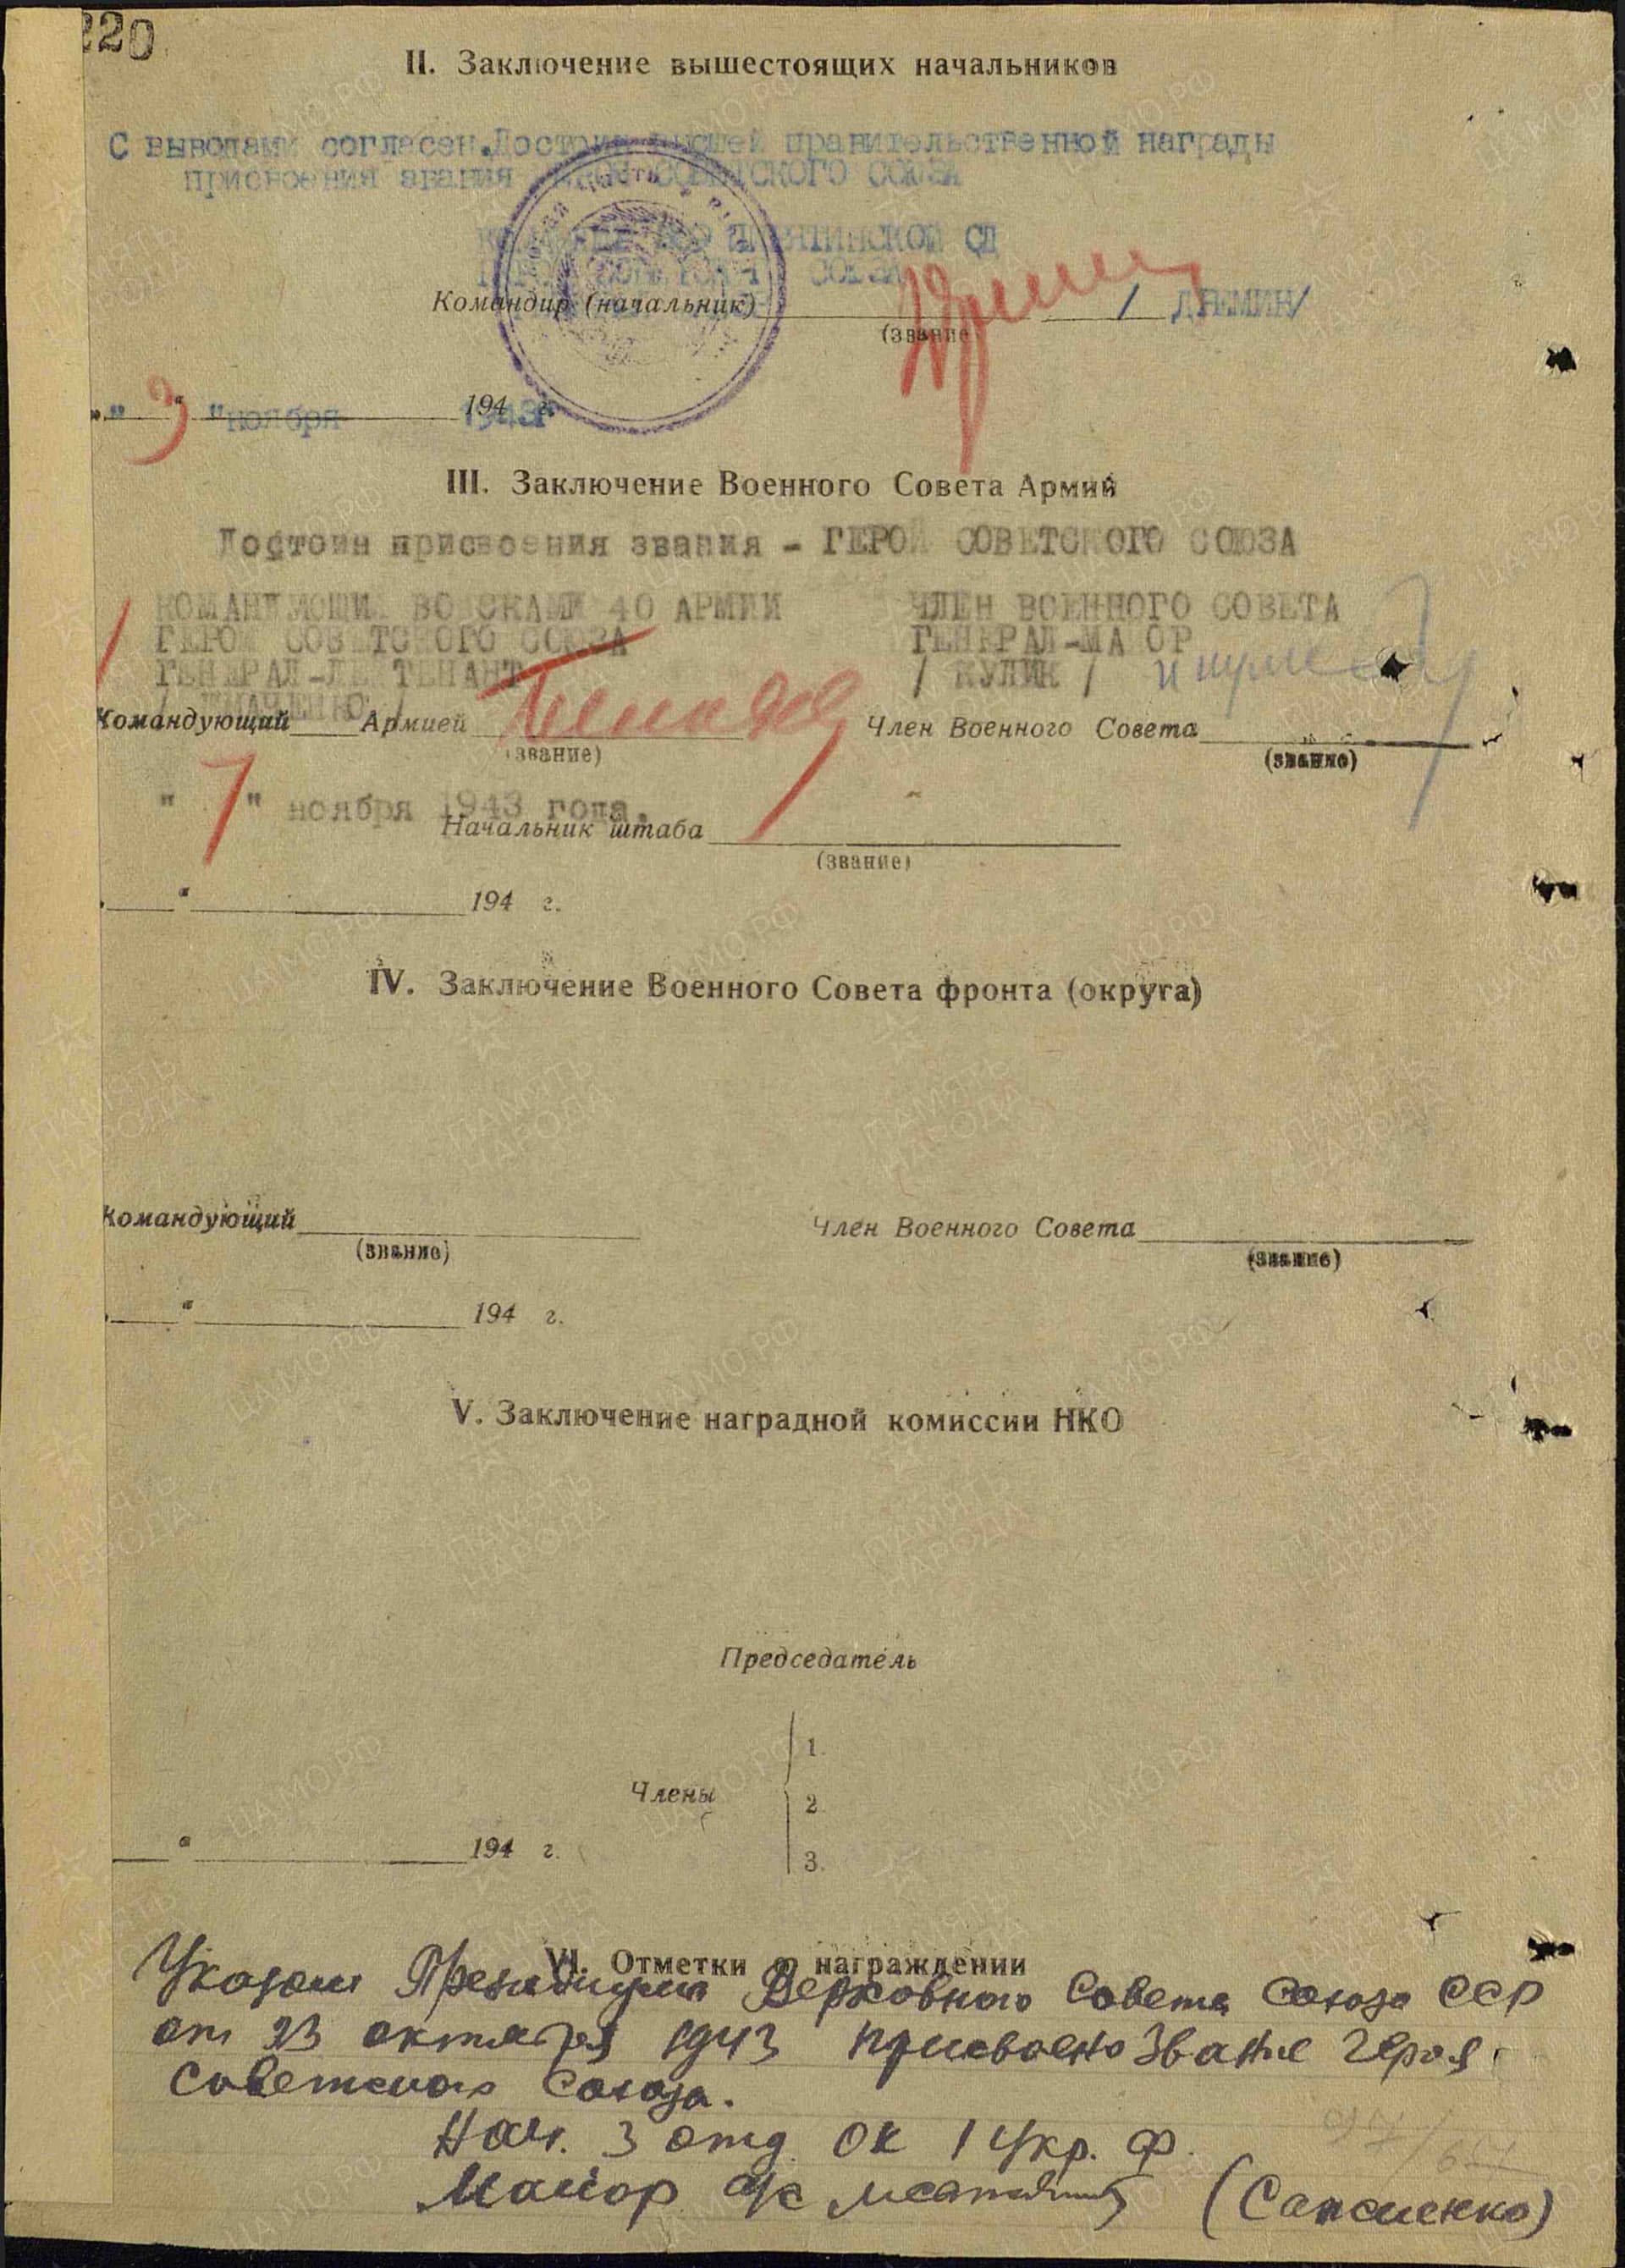 220
II. Заключение вышестоящих начальников
С выводами согласен. Достоин высшей правительственной награды
присвоения звания СОВЕТСКОГО СОЮЗА
СД
СОЮЗА
Командир (начальник) / ДРЕМИН/
(звание
" 3 " ноября 1943г
194 г.
III. Заключение Военного Совета Армии
Достоин присвоения звания - ГЕРОЙ СОВЕТСКОГО СОЮЗА
КОМАНДУЮЩИЙ ВОЙСКАМИ 40 АРМИИ ЧЛЕН ВОЕННОГО СОВЕТА
ГЕРОЙ СОВЕТСКОГО СОЮЗА ГЕНЕРАЛ-МАЙОР
ГЕНЕРАЛ-ЛЕЙТЕНАНТ / КУЛИК /
Командующий Армией Член Военного Совета
(звание) (звание)
" 7 " ноября 1943 года.
Начальник штаба
(звание)
" 194 г.
IV. Заключение Военного Совета фронта (округа)
Командующий Член Военного Совета
(звание) (звание)
" 194 г.
V. Заключение наградной комиссии НКО
Председатель
1.
Члены 2.
3.
" 194 г.
VI. Отметки о награждении
Указом Президиума Верховного Совета Союза ССР
от 23 октября 1943 присвоено Звание Героя
Советского Союза.
Нач. 3 отд. ОК 1 Укр. Ф.
Майор а/с
ПАМЯТЬ НАРОДА
ЦАМО.РФ